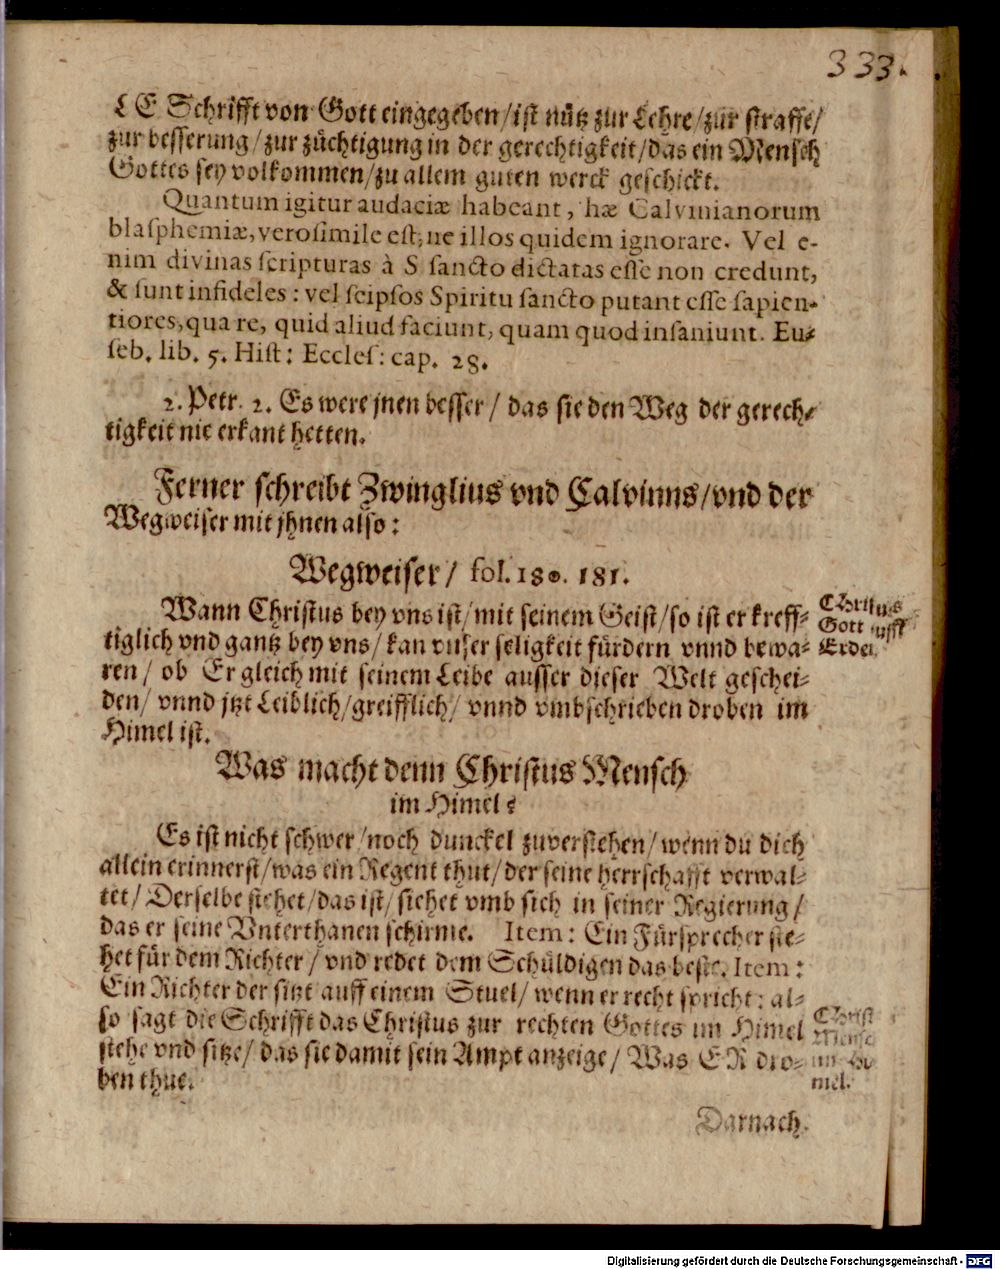 333.
LE Schrifft von Gott eingegeben/ist nütz zur Lehre/zur straffe/
zur besserung/zur züchtigung in der gerechtigkeit/das ein Mensch
Gottes sey volkommen/zu allem guten werck geschickt.
Quantum igitur audaciæ habeant, hæ Calvinianorum
blasphemiæ, verosimile est, ne illos quidem ignorare. Vel e-
nim divinas scripturas à S sancto dictatas esse non credunt,
& sunt infideles: vel seipsos Spiritu sancto putant esse sapien-
tiores, qua re, quid aliud faciunt, quam quod insaniunt. Eu-
seb. lib. 5. Hist: Eccles: cap. 28.
2. Petr. 2. Es were jnen besser/ das sie den Weg der gerech-
tigkeit nie erkant hetten.
Ferner schreibt Zwinglius vnd Calvinus/vnd der
Wegweiser mit jhnen also:
Wegweiser/ fol. 180. 181.
Wann Christus bey vns ist/mit seinem Geist/so ist er kreff-
tiglich vnd gantz bey vns/kan vnser seligkeit fürdern vnnd bewa-
ren/ ob Er gleich mit seinem Leibe ausser dieser Welt geschei-
den/ vnnd jtzt Leiblich/greifflich/ vnnd vmbschrieben droben im
Himel ist.
Christus
Gott uff
Erden
Was macht denn Christus Mensch
im Himel?
Es ist nicht schwer/noch dunckel zuverstehen/wenn du dich
allein erinnerst/was ein Regent thut/der seine herrschafft verwal-
tet/ Derselbe stehet/das ist/siehet vmb sich in seiner Regierung/
das er seine Vnterthanen schirme. Item: Ein Fürsprecher ste-
het für dem Richter/ vnd redet dem Schüldigen das beste. Item:
Ein Richter der sitzt auff einem Stuel/ wenn er recht spricht: al-
so sagt die Schrifft das Christus zur rechten Gottes im Himel
stehe vnd sitze/ das sie damit sein Ampt anzeige/ Was ER dro-
ben thue.
Christ
Mensc
im Hi
mel.
Darnach
Digitalisierung gefördert durch die Deutsche Forschungsgemeinschaft - DFG